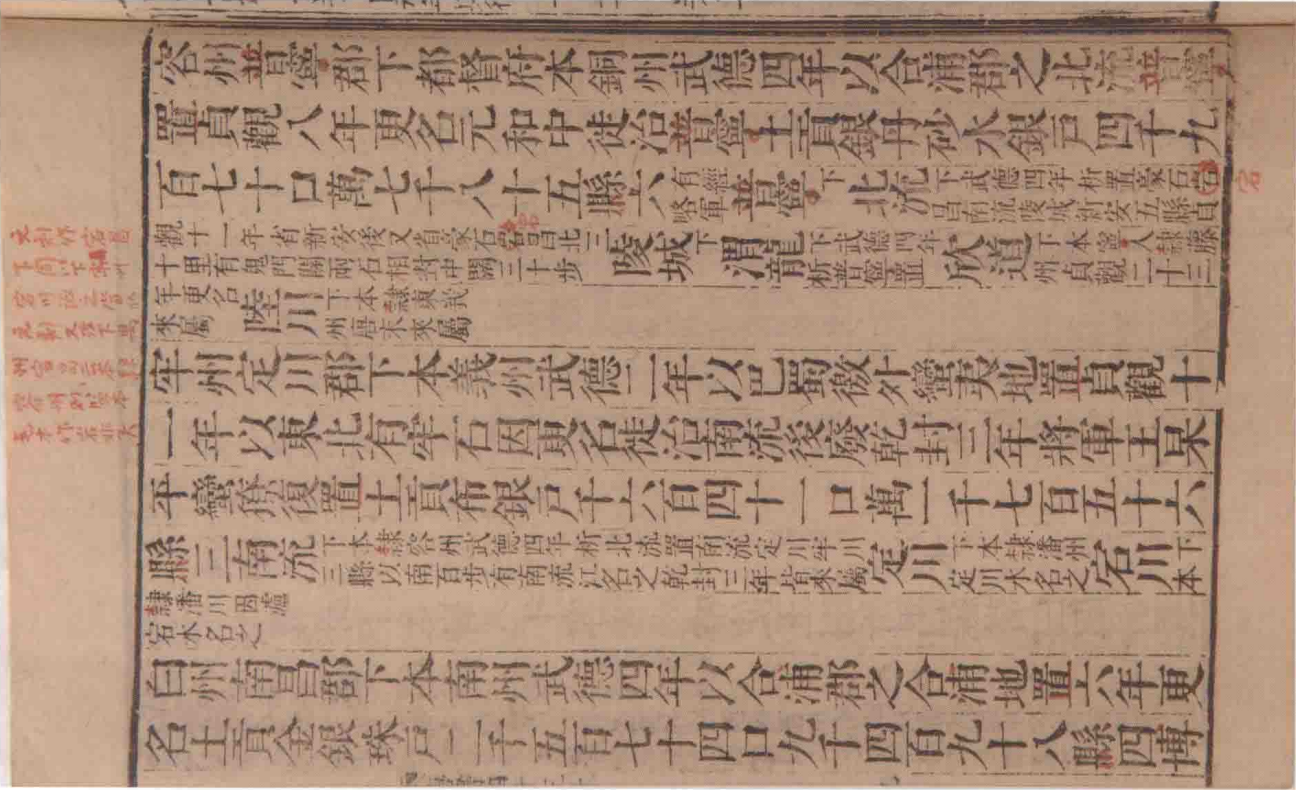 容州普寧郡下都督府本銅州武德四年以合浦郡之北流普寧
置貞觀八年更名元和中徙治普寧土貢銀丹砂水銀戶四千九
百七十口萬七千八十五縣六有經略軍普寧下北流下武德四年析置豪石宕昌南流陵城新安五縣貞
觀十一年省新安後又省豪石宕昌北三十里有鬼門關兩石相對中闊三十步陵城下渭龍下武德四年析普寧置欣道下本寧人隸藤州貞觀二十三
年更名來屬陸川下本隸東義州唐末來屬
牢州定川郡下本義州武德二年以巴蜀徼外蠻夷地置貞觀十
一年以東北有牢石因更名徙治南流後廢乾封三年將軍王杲
平蠻獠復置土貢布銀戶千六百四十一口萬一千七百五十六
縣三南流下本隸容州武德四年析北流置南流定川牢川三縣以南百步有南流江名之乾封三年皆來屬定川下本隸潘州定川水名之宕川下本
隸潘川因瀘宕水名之
白州南昌郡下本南州武德四年以合浦郡之合浦地置六年更
名土貢金銀珠戶二千五百七十四口九千四百九十八縣四博
宕